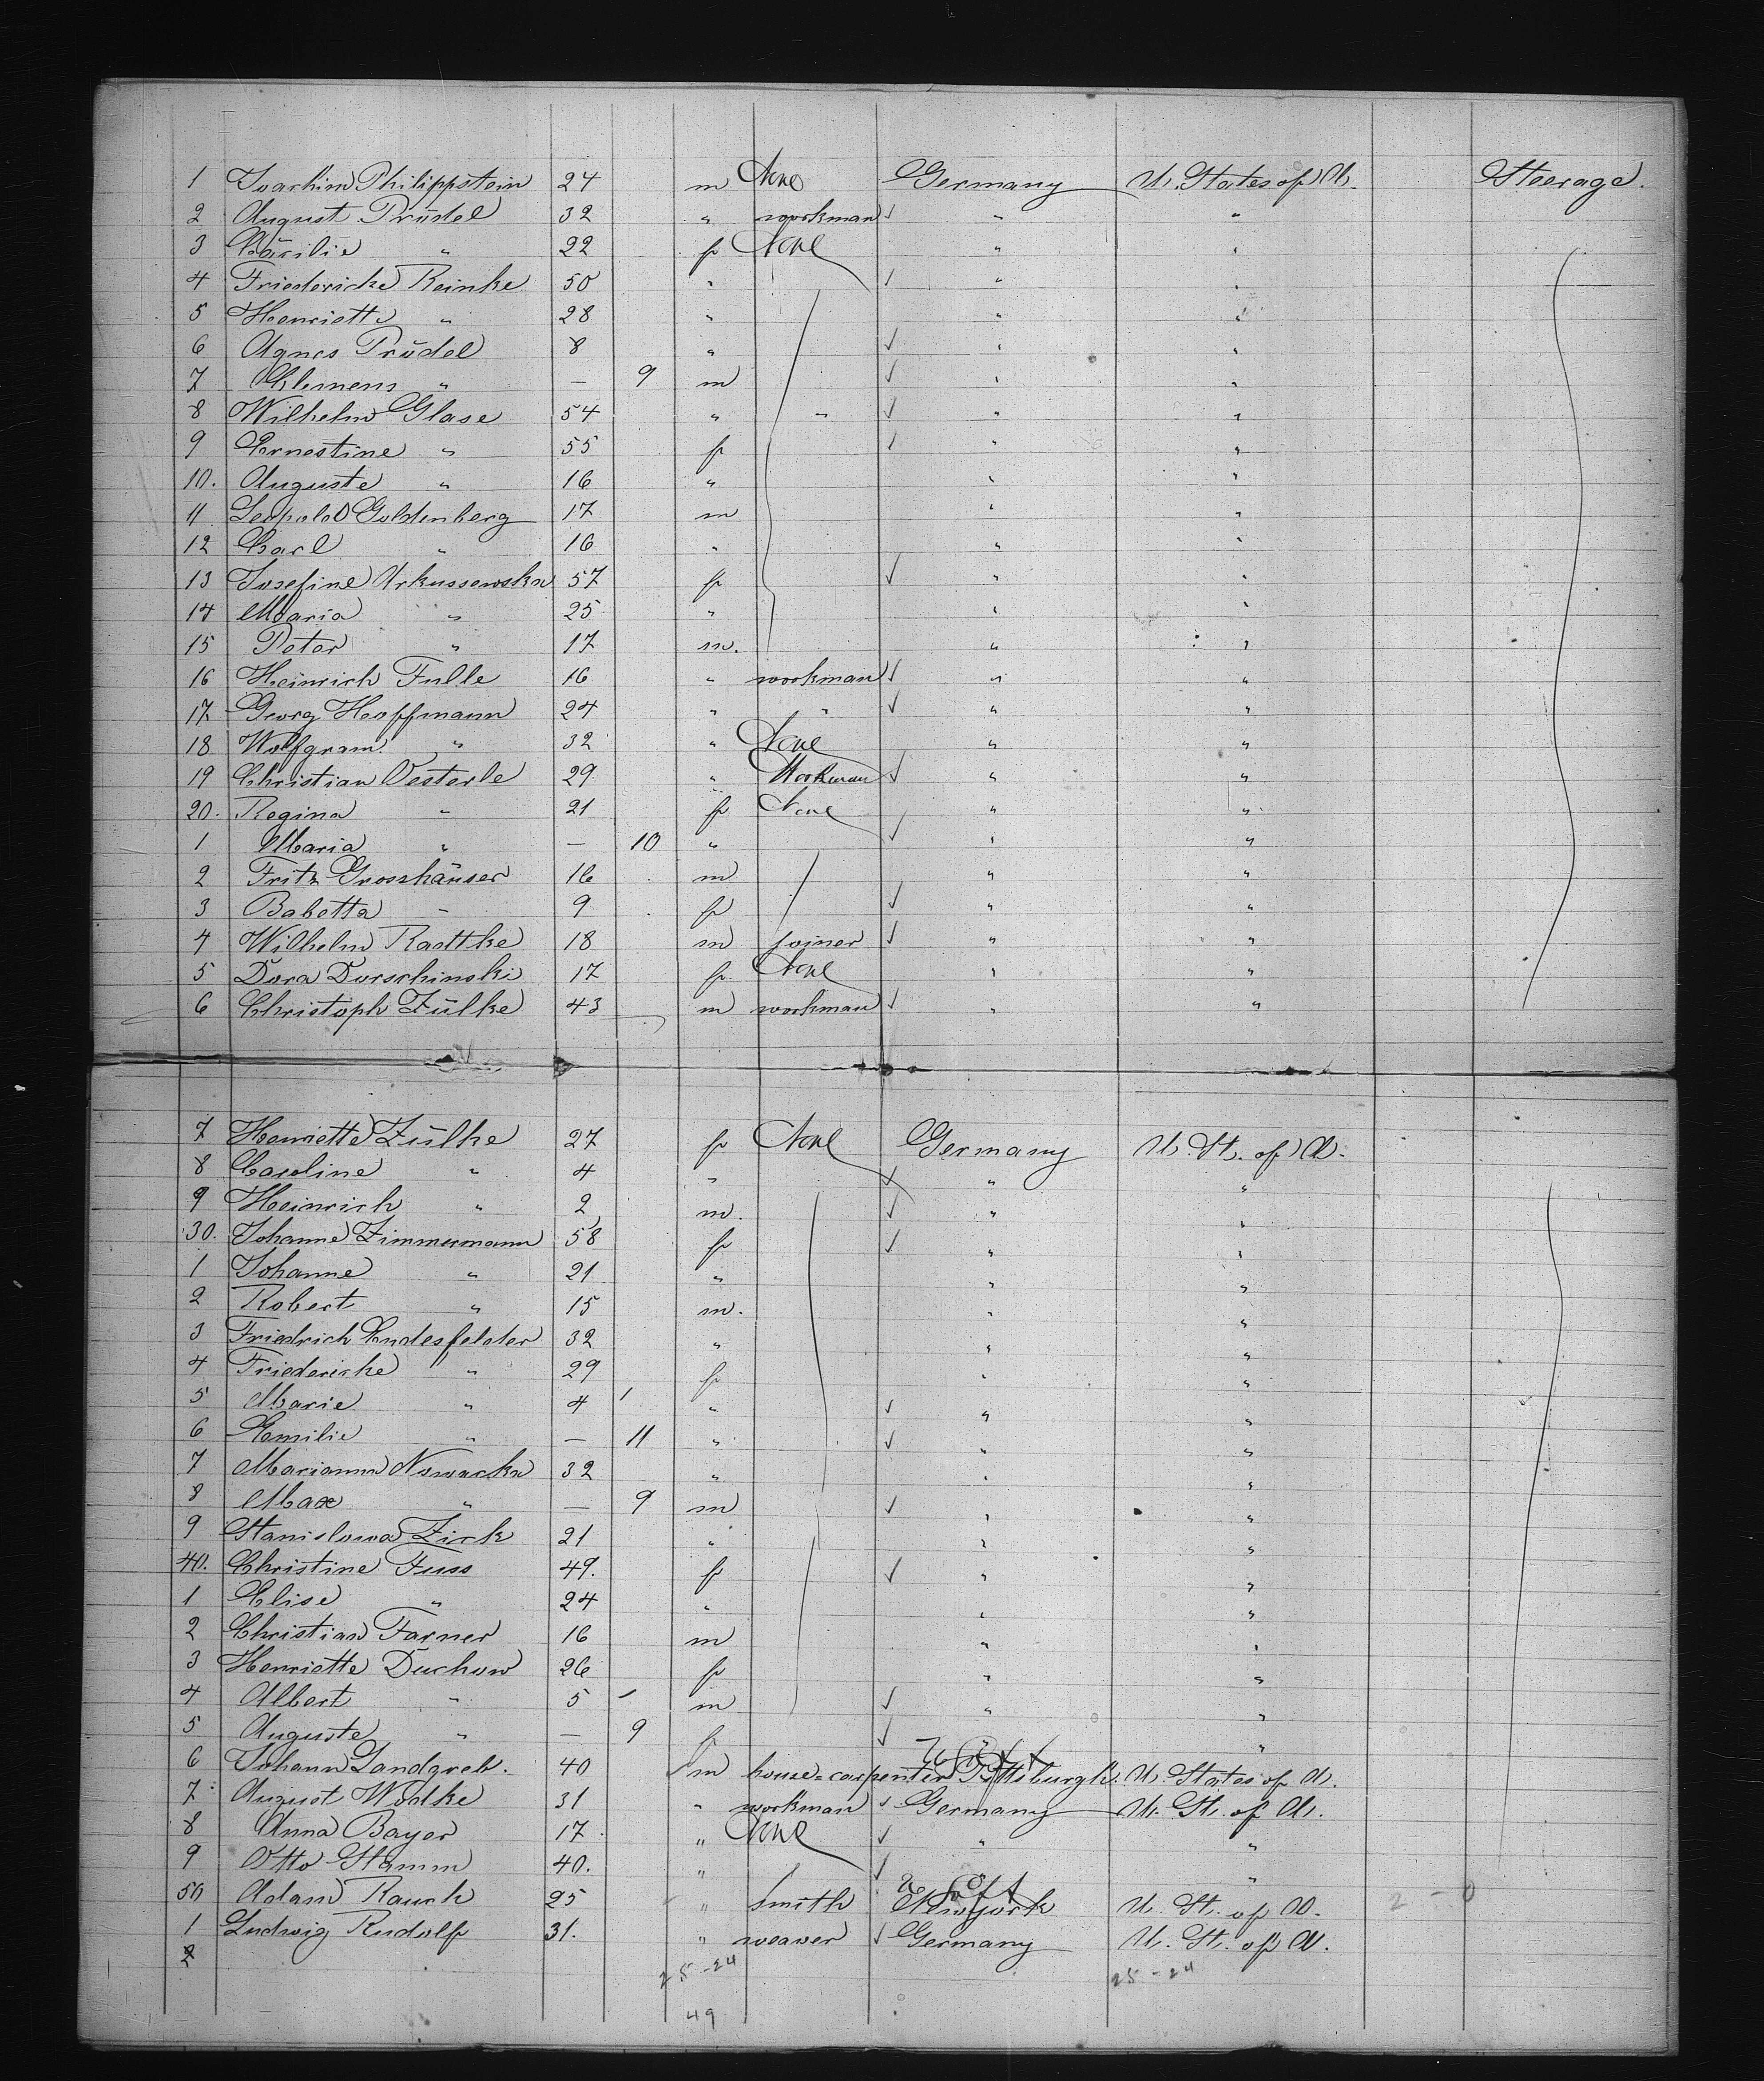 1 Joachim Philippstein 24 m None Germany U. States of A. Steerage.
2 August Prüdel 32 " workman " "
3 Cäcilie " 22 f None " "
4 Friedericke Reinke 50 " " "
5 Henriette " 28 " " "
6 Agnes Prüdel 8 " " "
7 Clemens " — 9 m " "
8 Wilhelm Glase 54 " " " "
9 Ernestine " 55 f " "
10. Auguste " 16 " " "
11 Leopold Goldenberg 17 m " "
12 Carl " 16 " " "
13 Josefine Arkussewska 57 f " "
14 Maria " 25 " " "
15 Peter " 17 m. " "
16 Heinrich Fulle 16 " workman " "
17 Georg Hopfmann 24 " " " "
18 Wolfgram " 32 " None " "
19 Christian Oesterle 29 " Workman " "
20. Regina " 21 f None " "
1 Maria " — 10 " " "
2 Fritz Grosshäuser 16 m " "
3 Babetta " 9 f " "
4 Wilhelm Radtke 18 m joiner " "
5 Dora Dorschinski 17 f. None " "
6 Christoph Zülke 43 m workman " "
7 Henriette Zülke 27 f None Germany U. St. of A.
8 Caroline " 4 " " "
9 Heinrich " 2 m. " "
30. Johanne Zimmermann 58 f " "
1 Johanne " 21 " " "
2 Robert " 15 m. " "
3 Friedrich Endesfelder 32 " " "
4 Friedericke " 29 f " "
5 Marie " 4 " " "
6 Emilie " — 11 " " "
7 Marianna Nowacka 32 " " "
8 Max " — 9 m " "
9 Stanislawa Zick 21 " " "
40. Christine Fuss 49. f " "
1 Elise " 24 " " "
2 Christian Farner 16 m " "
3 Henriette Duchow 26 f " "
4 Albert " 5 m " "
5 Auguste " — 9 f " "
6 Johann Landgreb. 40 m house=carpenter Pittsburgh. U. States of A.
7 August Wodke 31 " workman Germany U. St. of A.
8 Anna Bayer 17 " None " "
9 Otto Stamm 40. " "
50 Adam Rauch 25 " smith Newyork U. St. of A. 2 - 0
1 Ludwig Rudolf 31. " weaver Germany U. St. of A.
2
25-24 25-24
49